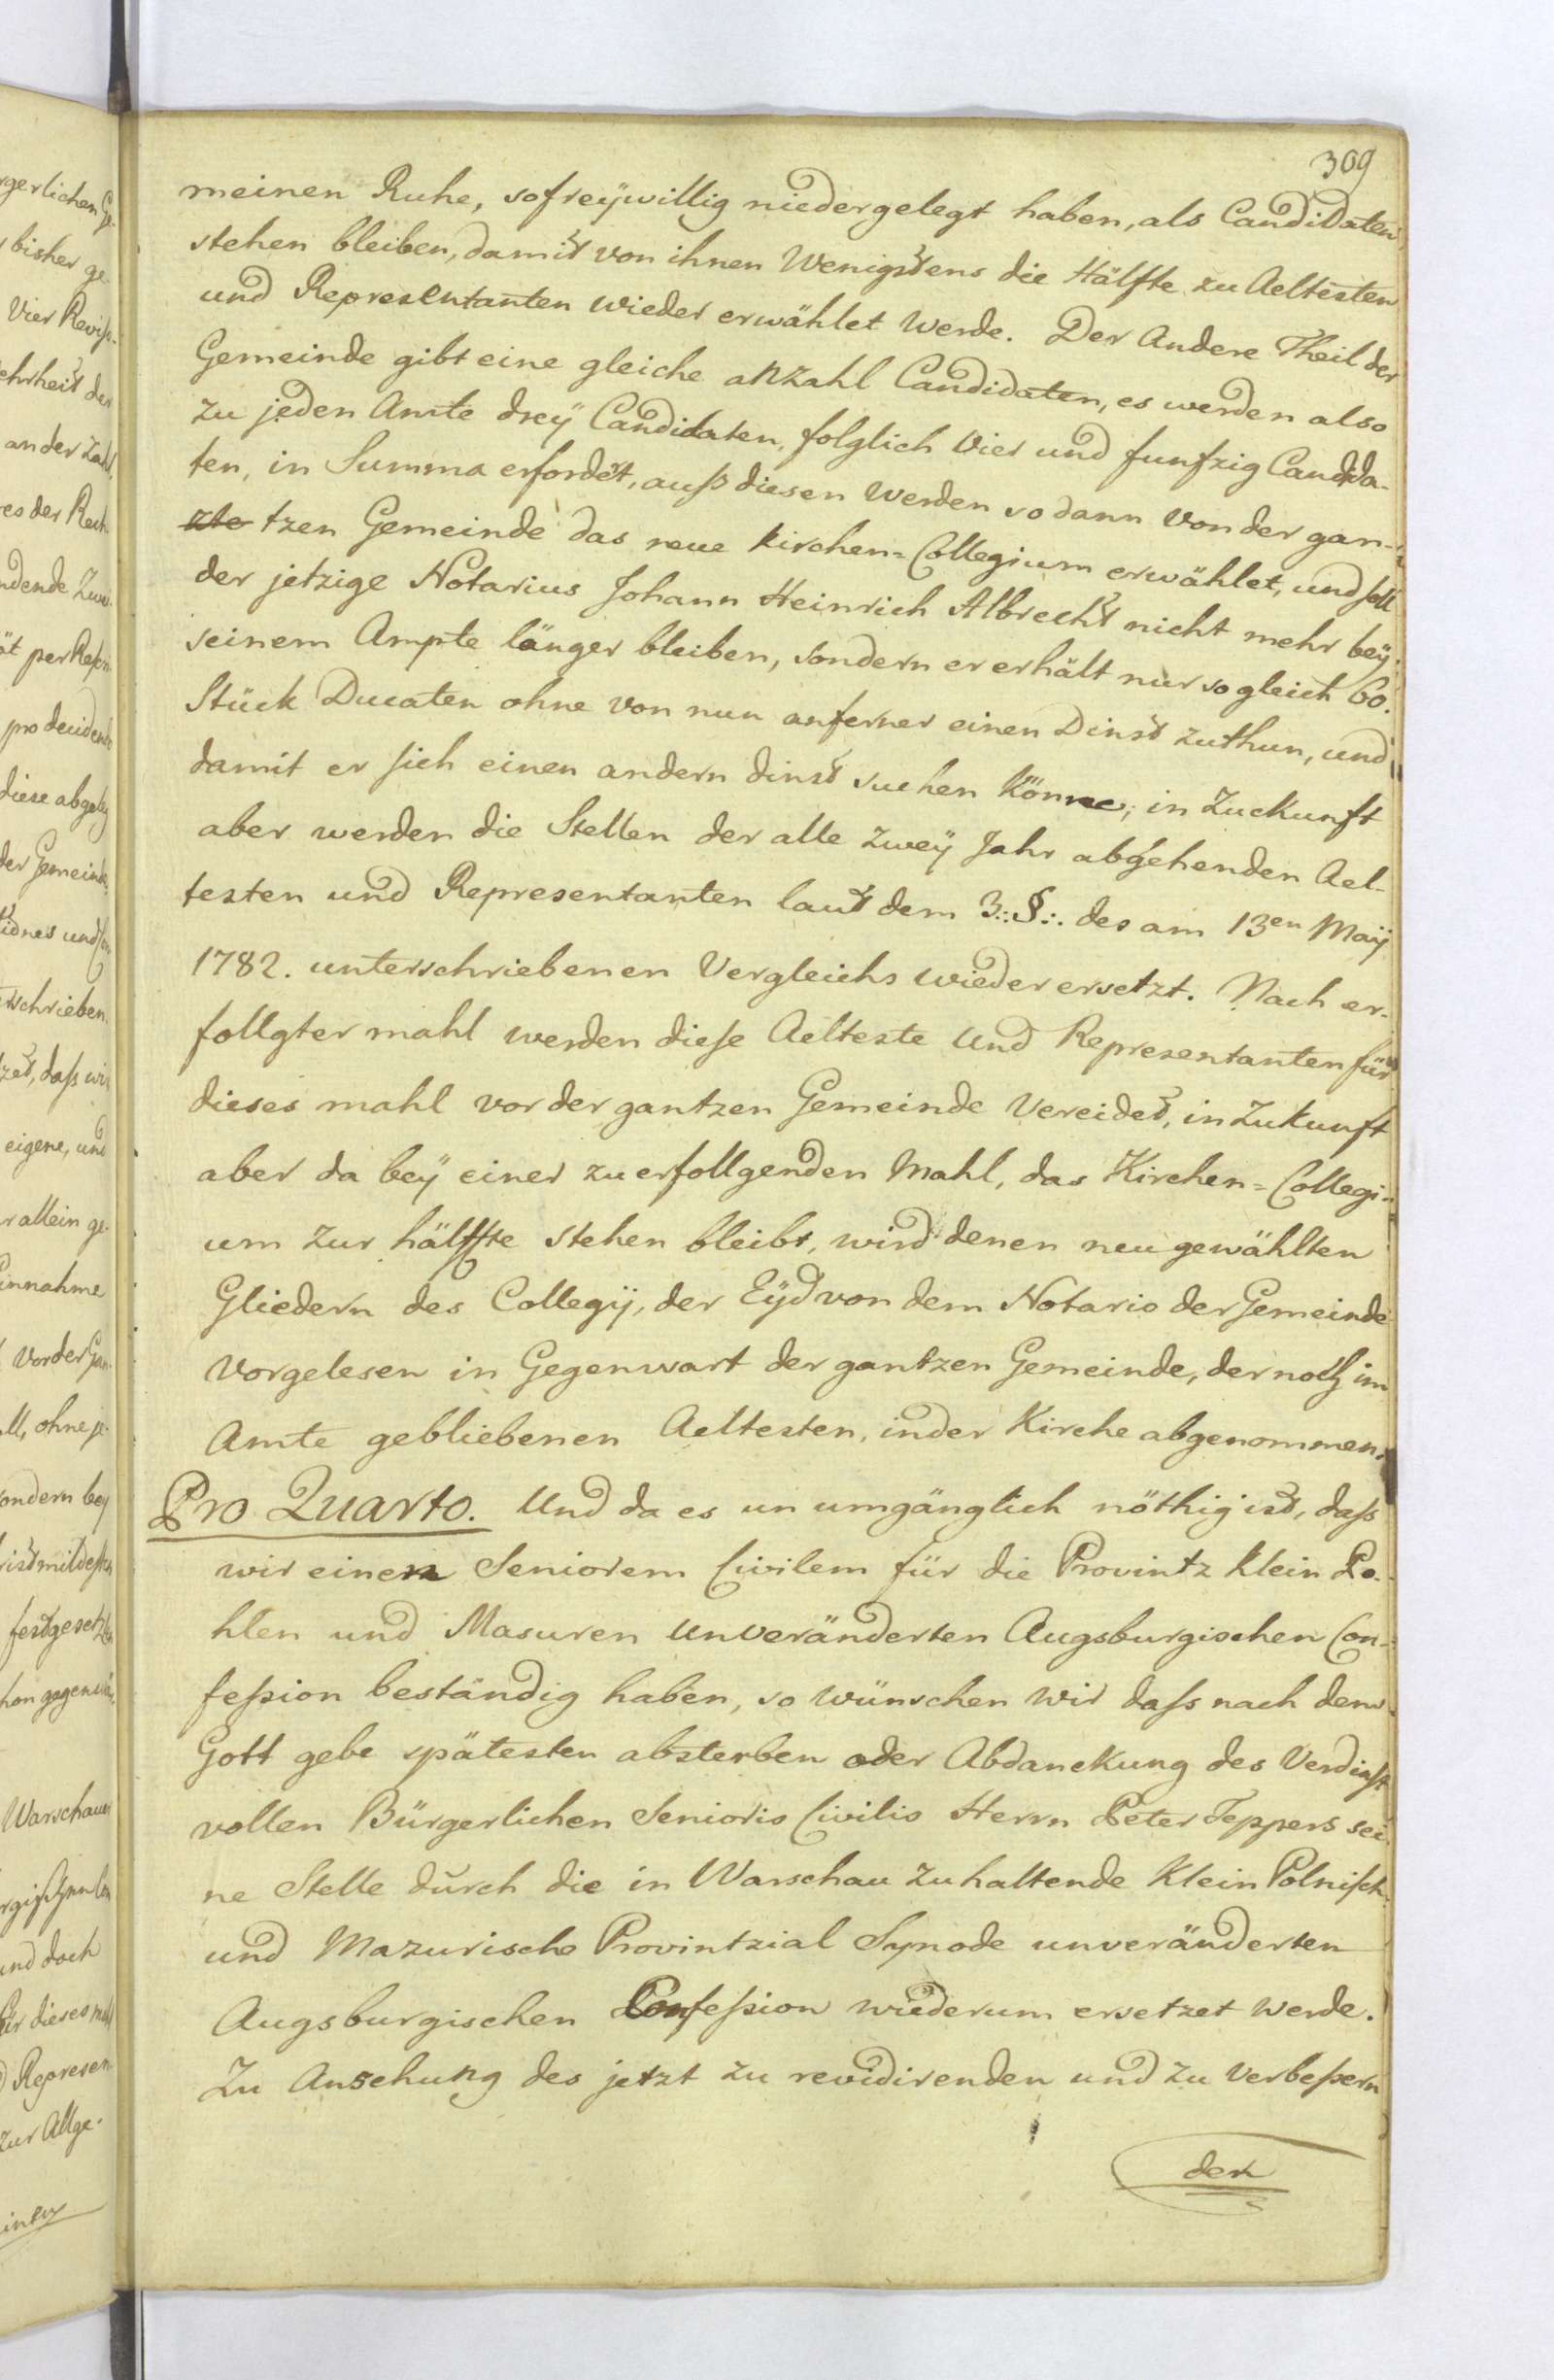 309
meinen Ruhe, so freÿwillig niedergelegt haben, als Candidaten
stehen bleiben, damit von ihnen Wenigstens die Hälfte zu Aeltesten
und Representanten wieder erwählet werde. Der Andere Theil der
Gemeinde gibt eine gleiche anzahl Candidaten, es werden also
zu jeden Amte dreÿ Candidaten, folglich Vier und funfzig Candida-
ten, in Summa erfordet, auß diesen werden sodann von der gan-
tzen Gemeinde das neue Kirchen-Collegium erwählet, und soll
der jetzige Notarius Johann Heinrich Albrecht nicht mehr beÿ
seinem Ampte länger bleiben, sondern er erhält nur sogleich 60.
Stück Ducaten ohne von nun anferner einen Dinst zuthun, und
damit er sich einen andern dinst suchen könne; in Zuckunft
aber werden die Stellen der alle zweÿ Jahr abgehenden Ael-
testen und Representanten laut dem 3.:§:. des am 13en Maÿ
1782. unterschriebenen Vergleichs wieder ersetzt. Nach er-
follgter mahl werden diese Aelteste und Representanten für
dieses mahl vor der gantzen Gemeinde Vereidet, in Zukunft
aber da beÿ einer zu erfollgenden Mahl, das Kirchen-Collegi-
um zur hälffte stehen bleibt, wird denen neu gewählten
Gliedern des Collegÿ, der Eÿd von dem Notario der Gemeinde
vorgelesen in Gegenwart der gantzen Gemeinde, der noch im
Amte gebliebenen Aeltesten, in der Kirche abgenommen.
Pro Quarto. Und da es un umgänglich nöthig ist, dass
wir einen Seniorem Civilem für die Provintz klein Po-
hlen und Masuren unveränderten Augsburgischen Con-
fession beständig haben, so wünschen wir dass nach dem
Gott gebe spätesten absterben oder Abdanckung des Verdinst
vollen Bürgerlichen Senioris Civilis Herrn Peter Teppers sei-
ne Stelle durch die in Warschau zu haltende Klein Polnisch
und Mazurische Provintzial Synode unveränderten
Augsburgischen Confession wiederum ersetzet werde.
Zu Ansehung des jetzt zu revidirenden und zu verbessern
den